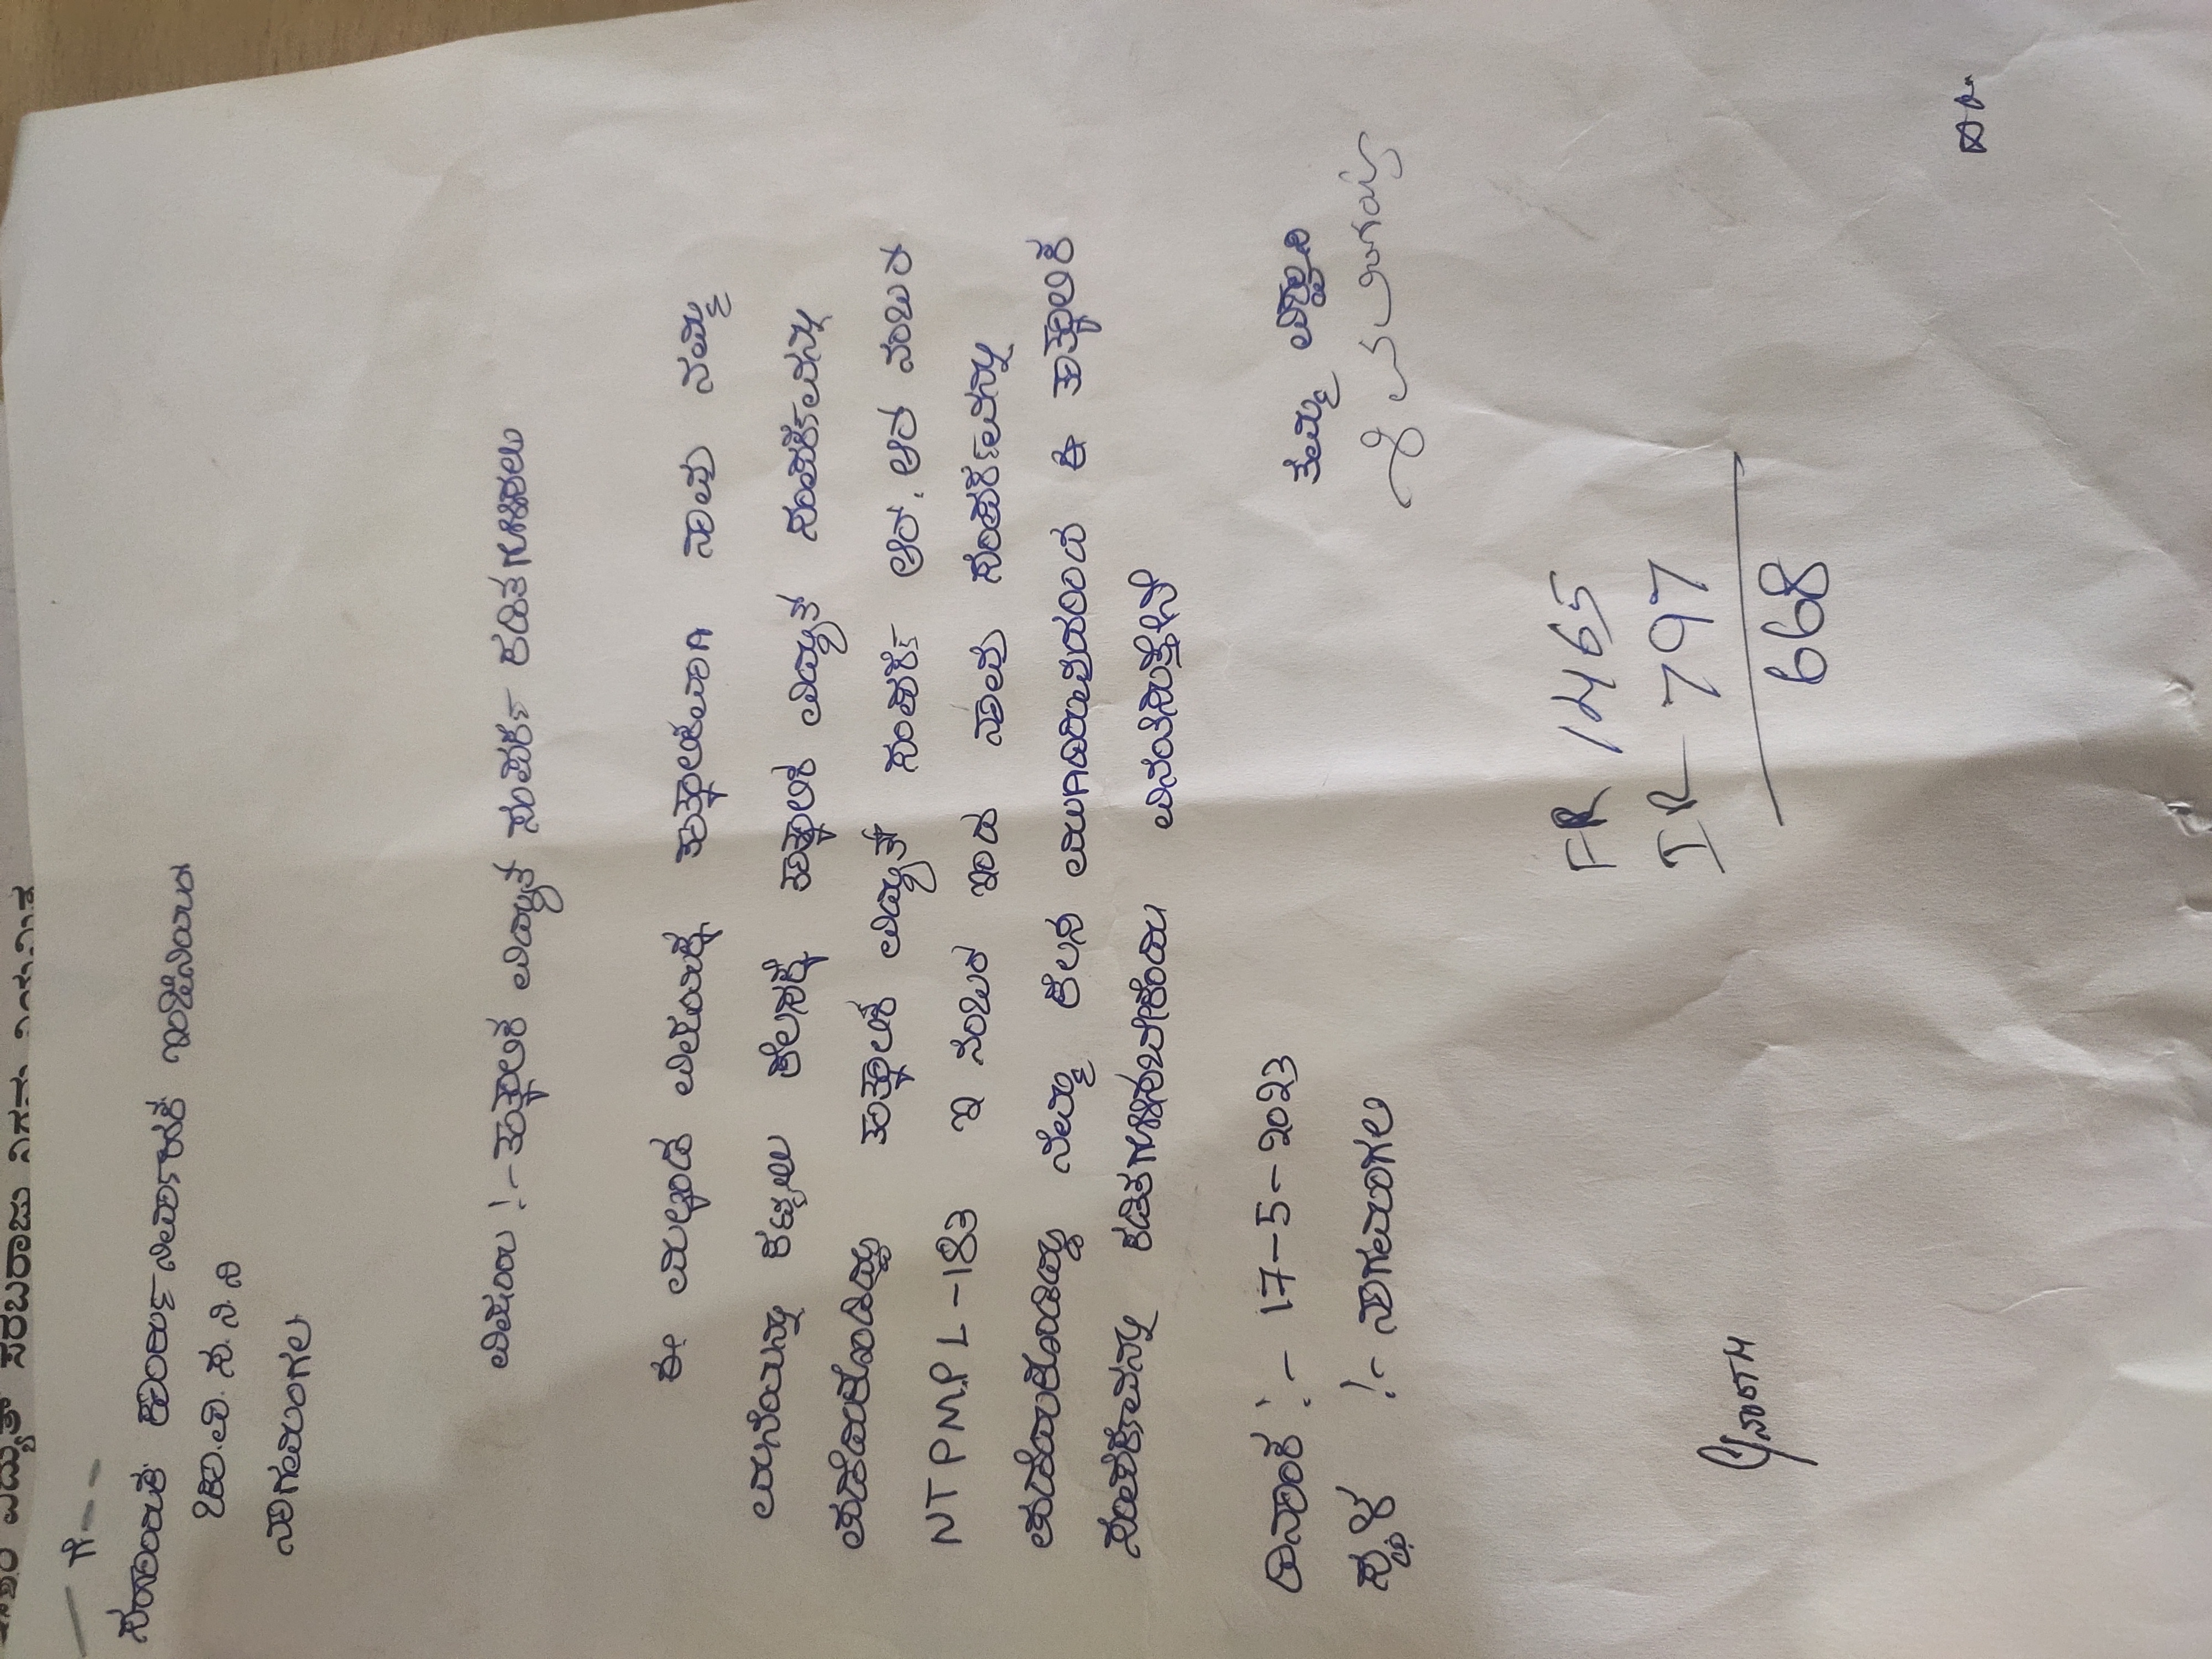 ಗೆ---
ಸಹಾಯಕ ಕಾರ್ಯನಿರ್ವಾಹಕ ಇಂಜಿನಿಯರ
ಚಾ.ವಿ.ಸ.ನಿ.ನಿ
ನಾಗಮಂಗಲ
ವಿಷಯ !- ತಾತ್ಕಾಲಿಕ ವಿದ್ಯುತ್ ಸಂಪರ್ಕ ಕಡಿತಗೊಳಿಸಲು
ಈ ಮೇಲ್ಕಂಡ ವಿಷಯಕ್ಕೆ ತಾತ್ಕಾಲಿಕವಾಗಿ ನಾವು ನಮ್ಮ
ಮನೆಯನ್ನು ಕಟ್ಟಲು ಕೆಲಸಕ್ಕೆ ತಾತ್ಕಾಲಿಕ ವಿದ್ಯುತ್ ಸಂಪರ್ಕವನ್ನು
ಪಡೆದುಕೊಂಡಿದ್ದು ತಾತ್ಕಾಲಿಕ ವಿದ್ಯುತ್ ಸಂಪರ್ಕ ಆರ್.ಆರ್ ನಂಬರ
NTPMPL-183 ಇ ನಂಬರ ಇಂದ ನಾವು ಸಂಪರ್ಕವನ್ನು
ಪಡೆದುಕೊಂಡಿದ್ದು ನಮ್ಮ ಕೆಲಸ ಮುಗಿದಿರುವುದರಿಂದ ಈ ತಾತ್ಕಾಲಿಕ
ಸಂಪರ್ಕವನ್ನು ಕಡಿತಗೊಳಿಸಬೇಕೆಂದು ವಿನಂತಿಸುತ್ತೇನೆ
ದಿನಾಂಕ !- 17-5-2023
ತಮ್ಮ ವಿಶ್ವಾಸಿ
ಸ್ಥಳ !- ನಾಗಮಂಗಲ
FR 1465
IR - 797
668